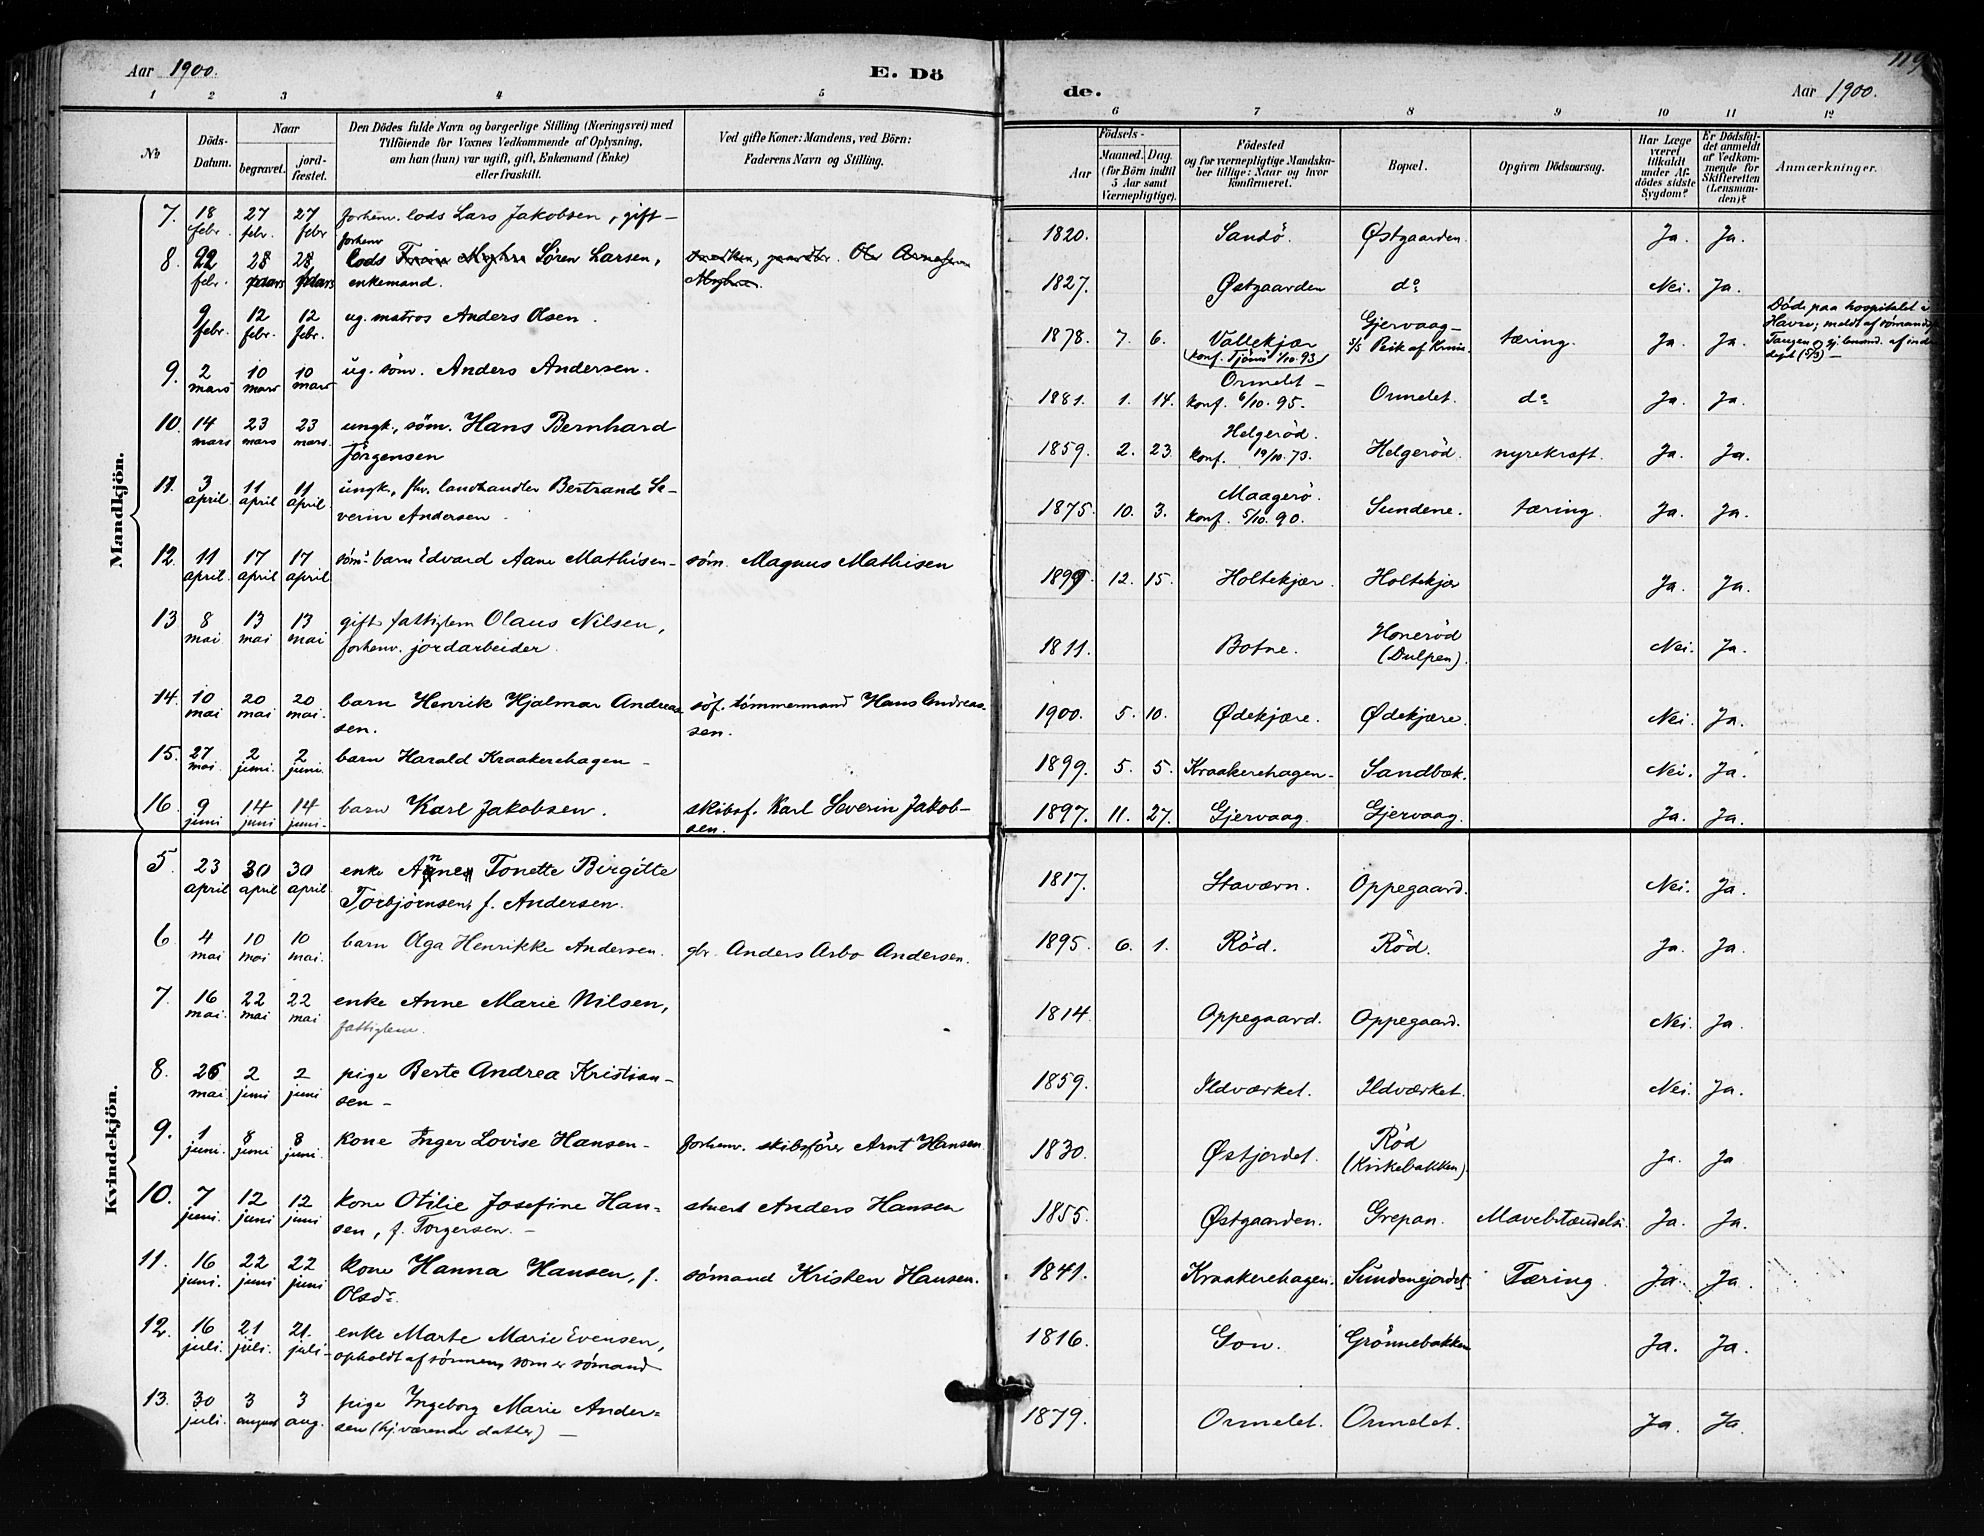 119
Aar 1900. E. Dö de. Aar 1900.
1 2 3 4 5 6 7 8 9 10 11 12
No
Döds-Datum.
Naar
begravet.
jord-fæstet.
Den Dödes fulde Navn og borgerlige Stilling (Næringsvei) med
Tilföiende for Voxnes Vedkommende af Oplysning,
om han (hun) var ugift, gift, Enkemand (Enke)
eller fraskilt.
Ved gifte Koner: Mandens, ved Börn:
Faderens Navn og Stilling.
Födsels-
Aar
Maaned. Dag.
(for Börn indtil
5 Aar samt
Værnepligtige).
Födested
og for værnepligtige Mandska-
ber tillige: Naar og hvor
konfirmeret.
Bopæl.
Opgiven Dödsaarsag.
Har Læge
været
tilkaldt
under Af-
dödes sidste
Sygdom?
Er Dödsfal-
det anmeldt
af Vedkom-
mende for
Skifteretten
(Lensman-
den)?
Anmærkninger.
Mandkjön.
7. 18 febr. 27 febr. 27 febr forhenv. lods Lars Jakobsen, gift - 1820. Sandö. Østgaarden. Ja. Ja.
8. 22 febr. 28 febr 28 febr forhenv lods Søren Larsen,
enkemand. 1827. Østgaarden do Nei. Ja.
9 febr. 12 febr. 12 febr. ug. matros Anders Olsen. 1878. 7. 6. Vallekjær
(konf. Tjömö 1/10.93) Gjervaag-
S/S Peik af Krania. tæring. Ja. Ja. Döde paa hospitalet i
Havre; meldt af sömands
9. 2 mars 10 mars 10 mars ug. söm. Anders Andersen. 1881. 1. 14. Ormelet -
konf. 6/10.95. Ormelet. do Ja. Ja.
10. 14 mars 23 mars 23 mars. ungk., söm. Hans Bernhard
Jörgensen 1859. 2. 23. Helgeröd.
konf. 19/10.73. Helgeröd. nyrekraft. Ja. Ja.
11. 3 april. 11 april 11 april. ungk., fhv. landhandler Bertrand Se-
verin Andersen. 1875. 10. 3. Maagerö.
konf. 5/10.90. Sundene. tæring. Ja. Ja.
12. 11 april. 17 april 17 april söm.-barn Edvard Aane Mathisen- söm. Magnus Mathisen 1899. 12. 15. Holtekjær. Holtekjær Ja. Ja.
13 8 mai 13 mai 13 mai gift fattiglem Olaus Nilsen,
forhenv. jordarbeider. 1811. Botne. Honeröd
(Dulpen). Nei. Ja.
14. 10 mai 20 mai 20 mai. barn Henrik Hjalmar Andreas
sen. söf. tömmermand Hans Andreas-
sen. 1900. 5. 10. Ødekjære. Ødekjære. Nei. Ja.
15. 27 mai. 2 juni. 2 juni. barn Harald Kraakerehagen - 1899. 5. 5. Kraakerehagen- Sandbæk. Nei. Ja.
16. 9 juni 14 juni 14 juni. barn Karl Jakobsen. skibsf. Karl Severin Jakob-
sen. 1897. 11. 27. Gjervaag. Gjervaag. Ja. Ja.
Kvindekjön.
5. 23 april 30 april 30 april enke Anne Tonette Birgitte
Torbjörnsen f. Andersen. 1817. Staværn. Oppegaard. Nei. Ja.
6. 4 mai 10 mai 10 mai. barn Olga Henrikke Andersen. gbr. Anders Arbo Andersen. 1895. 6. 1. Röd. Röd. Ja. Ja.
7. 16 mai. 22 mai 22 mai enke Anne Marie Nilsen,
fattiglem. 1814 Oppegaard. Oppegaard. Nei. Ja.
8. 26 mai. 2 juni 2 juni pige Berte Andrea Kristian-
sen - 1859. Ildværket. Ildværket. Nei. Ja.
9. 1 juni. 8 juni 8 juni. kone Inger Lovise Hansen- forhenv. skibsförer Arnt Hansen 1830. Østjordet. Röd
(Kirkebakken). Ja. Ja
10. 7 juni. 12 juni 12 juni kone Otilie Josefine Han-
sen, f. Torgersen. - stuert Anders Hansen 1855. Østgaarden. Grepan. Mavebetændelse. Ja. Ja.
11. 16 juni. 22 juni 22 juni kone Hanna Hansen, f.
Olsdr. sömand Kristen Hansen. 1841. Kraakerehagen. Sundenejordet Tæring. Ja. Ja.
12. 16 juli. 21 juli. 21. juli- enke Marte Marie Evensen,
opholdt af sönnen, som er sömand 1816. Gon. Grönnebakken Ja. Ja.
13. 30 juli. 3 august 3 aug. pige Ingeborg Marie Ander-
sen (hj.værende datter) - 1879. Ormelet. Ormelet. Ja. Ja.